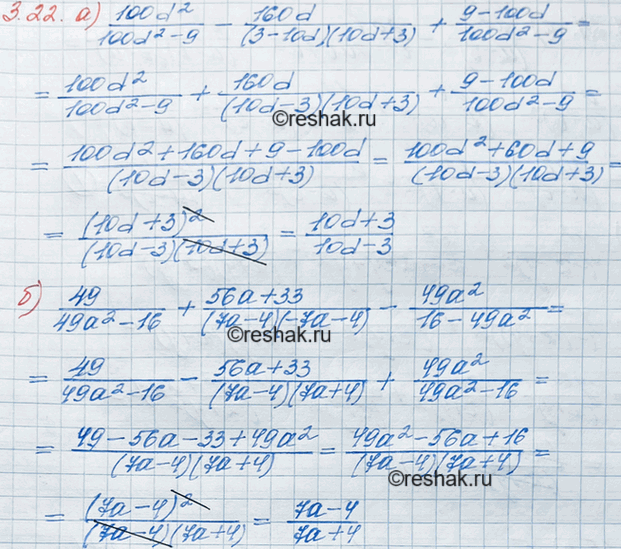 3.22. а) 100d²/(100d²-9) - 160d/((3-10d)(10d+3)) + (9-100d)/(100d²-9) =
= 100d²/(100d²-9) + 160d/((10d-3)(10d+3)) + (9-100d)/(100d²-9) =
©reshak.ru
= (100d²+160d+9-100d)/((10d-3)(10d+3)) = (100d²+60d+9)/((10d-3)(10d+3)) =
= (10d+3)²/((10d-3)(10d+3)) = (10d+3)/(10d-3)
б) 49/(49a²-16) + (56a+33)/((7a-4)(-7a-4)) - 49a²/(16-49a²) =
©reshak.ru
= 49/(49a²-16) - (56a+33)/((7a-4)(7a+4)) + 49a²/(49a²-16) =
= (49-56a-33+49a²)/((7a-4)(7a+4)) = (49a²-56a+16)/((7a-4)(7a+4)) =
= (7a-4)²/((7a-4)(7a+4)) = (7a-4)/(7a+4)
©reshak.ru